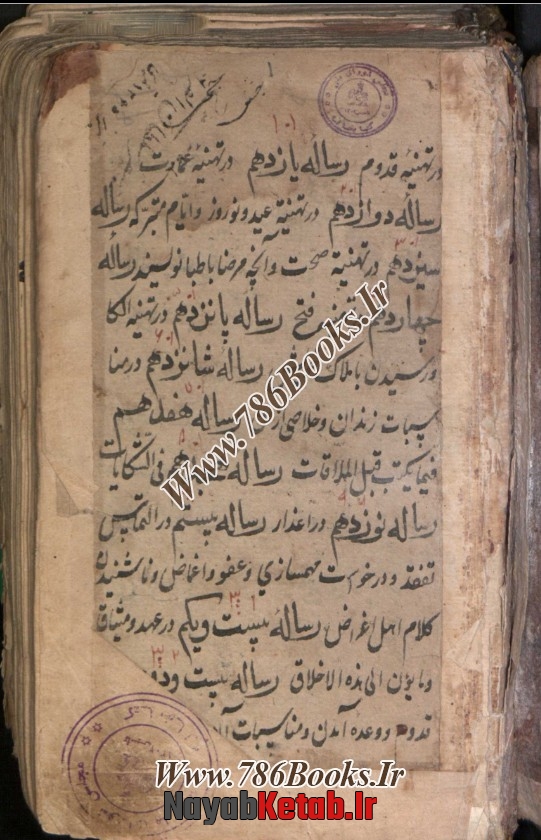 در تهنیهٔ قدوم رساله یازدهم در تهنیهٔ
رساله دوازدهم در تهنیة عید و نوروز و ایام متبرکه رساله
سیزدهم در تهنیة صحت و آنچه مرضا باطبا نویسند رساله
چهاردهم فتح رساله پانزدهم در تهنیه
و رسیدن باملاک رساله شانزدهم در منا
سبات زندان و خلاصی از رساله هفدهم
فیما یکتب قبل الملاقات رساله فی الشکایات
رساله نوزدهم در اعذار رساله بیستم در التماس
تفقد و درخواست مهمسازی و عفو و اغماض و ناشنیدن
کلام اهل اغراض رساله بیست ویکم در عهد و میثاق
وما یؤن الی هذه الاخلاق رساله بیست ودو
قدوم و وعده آمدن و مناسبات
Www.786Books.Ir
Www.786Books.Ir
NayabKetab.Ir